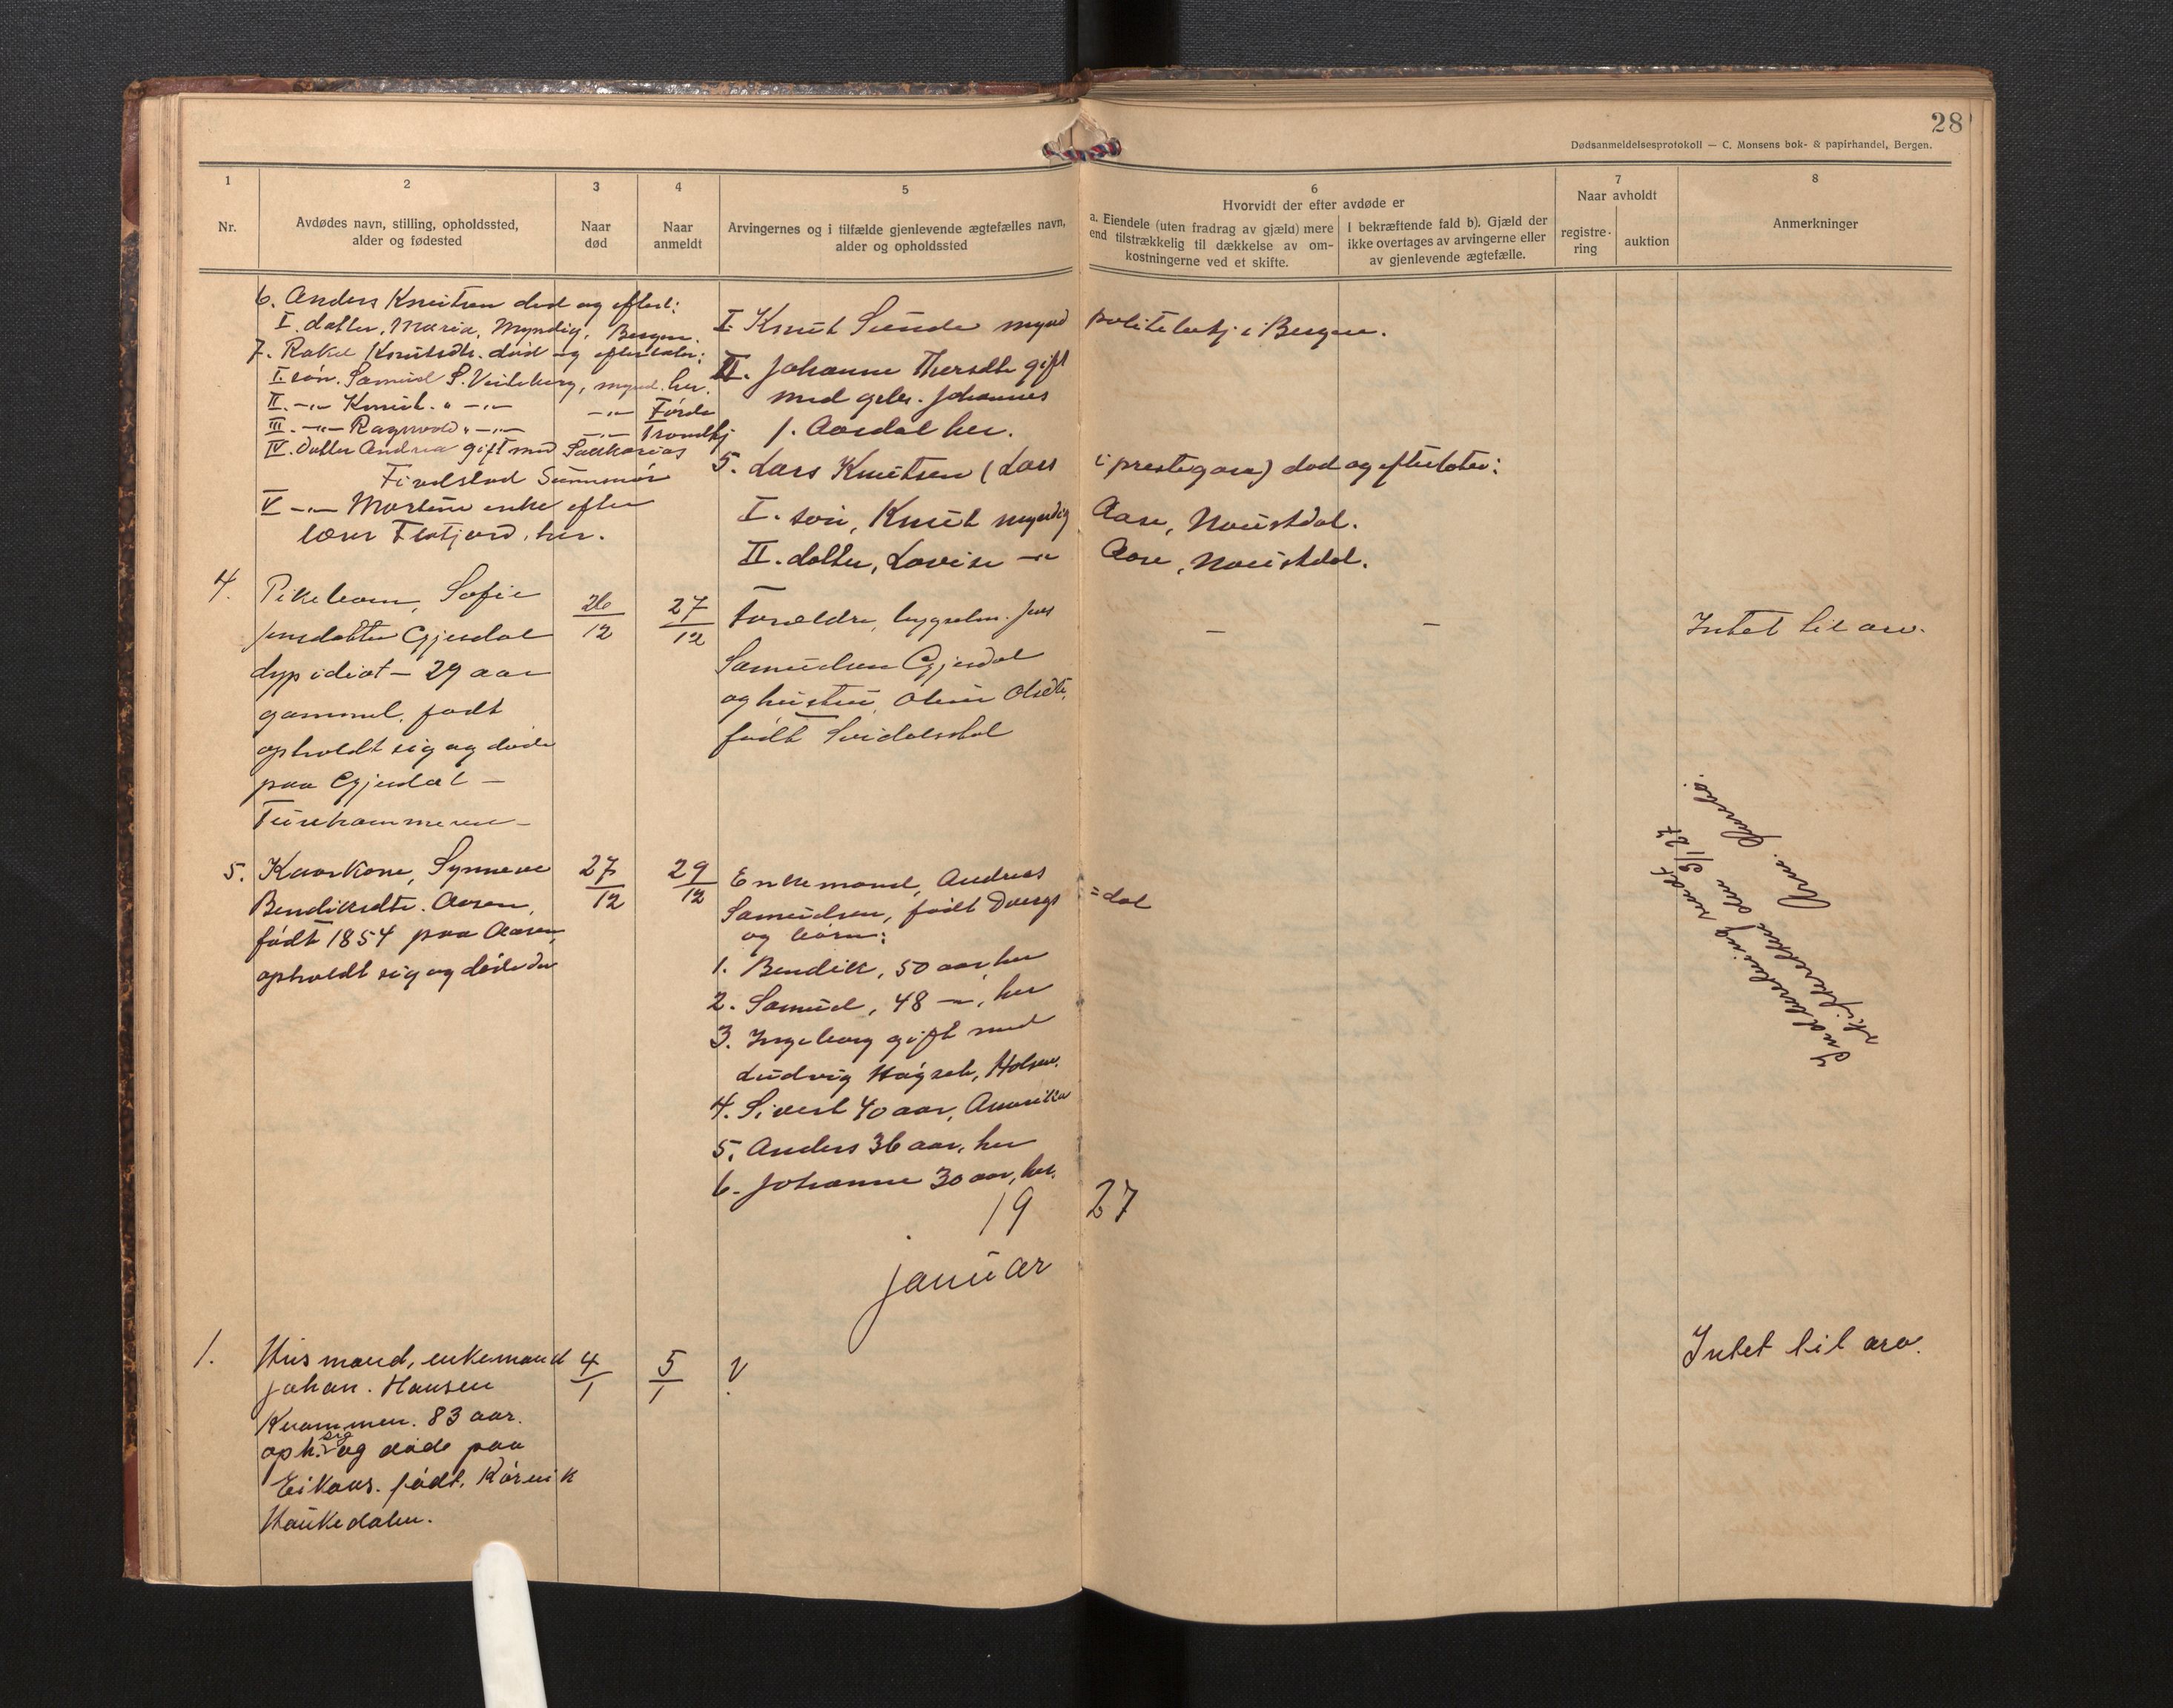 28
Dødsanmeldelsesprotokoll — C. Monsens bok- & papirhandel, Bergen.
1
Nr.
2
Avdødes navn, stilling, opholdssted,
alder og fødested
3
Naar
død
4
Naar
anmeldt
5
Arvingernes og i tilfælde gjenlevende ægtefælles navn,
alder og opholdssted
6
Hvorvidt der efter avdøde er
a. Eiendele (uten fradrag av gjæld) mere
end tilstrækkelig til dækkelse av om-
kostningerne ved et skifte.
I bekræftende fald b). Gjæld der
ikke overtages av arvingerne eller
av gjenlevende ægtefælle.
7
Naar avholdt
registre-
ring
auktion
8
Anmerkninger
6. Anders Knutsen død og efterl:
I. datter, Maria, Myndig, Bergen.
7. Rakel Knutsdtr. død og efterlater:
I. søn. Samuel S. Vieleburg, mynd. her.
II. -"- Knut. " -"- -"- Førde
III. -"- Ragnvald " -"- -"- Trondhj
IV. datter Andrea gift med Sakkarias
Findstad Sunnmør
V -"- Martine enke efter
lærer Flatjord, her.
I. Knut Sunde mynd politibetj. i Bergen.
II. Johanne Thersdtr gift
med gbr. Johannes
J. Aardal her.
5. Lars Knutsen (Lars i prestegara) død og efterlater:
I. søn, Knut myndig Aase, Naustdal.
II. datter, Lovise -"- Aase, Naustdal.
4. Pikebarn, Sofie
Jensdatter Gjesdal
dyp idiot – 29 aar
gammel, født
opholdt sig og døde
paa Gjesdal –
26/12
27/12
Forældre, bygselm. Jens
Samuelsen Gjesdal
og hustru, Oline Olsdtr.
født
–
–
Intet til arv.
5. Kaarkone, Synneve
Bendiksdtr. Aasen,
født 1854 paa Aasen,
opholdt sig og døde der
27/12
29/12
Enkemand, Andreas
Samuelsen, født Dvergs =dal
og børn:
1. Bendik, 50 aar, her
2. Samuel, 48 -"-, her
3. Ingeborg gift med
Ludvig Høgset, Holsen.
4. Sivert 40 aar, Amerika
5. Anders 36 aar, her
6. Johanne 30 aar, her.
Indberetning sendt
skifteretten den 3/1 27
19 27
Januar
1. Husmand, enkemand
Johan. Hansen
Kvammen. 83 aar.
oph. sig og døde paa
Eikaas. født, Rørvik
Haukedalen.
4/1
5/1
?
Intet til arv.